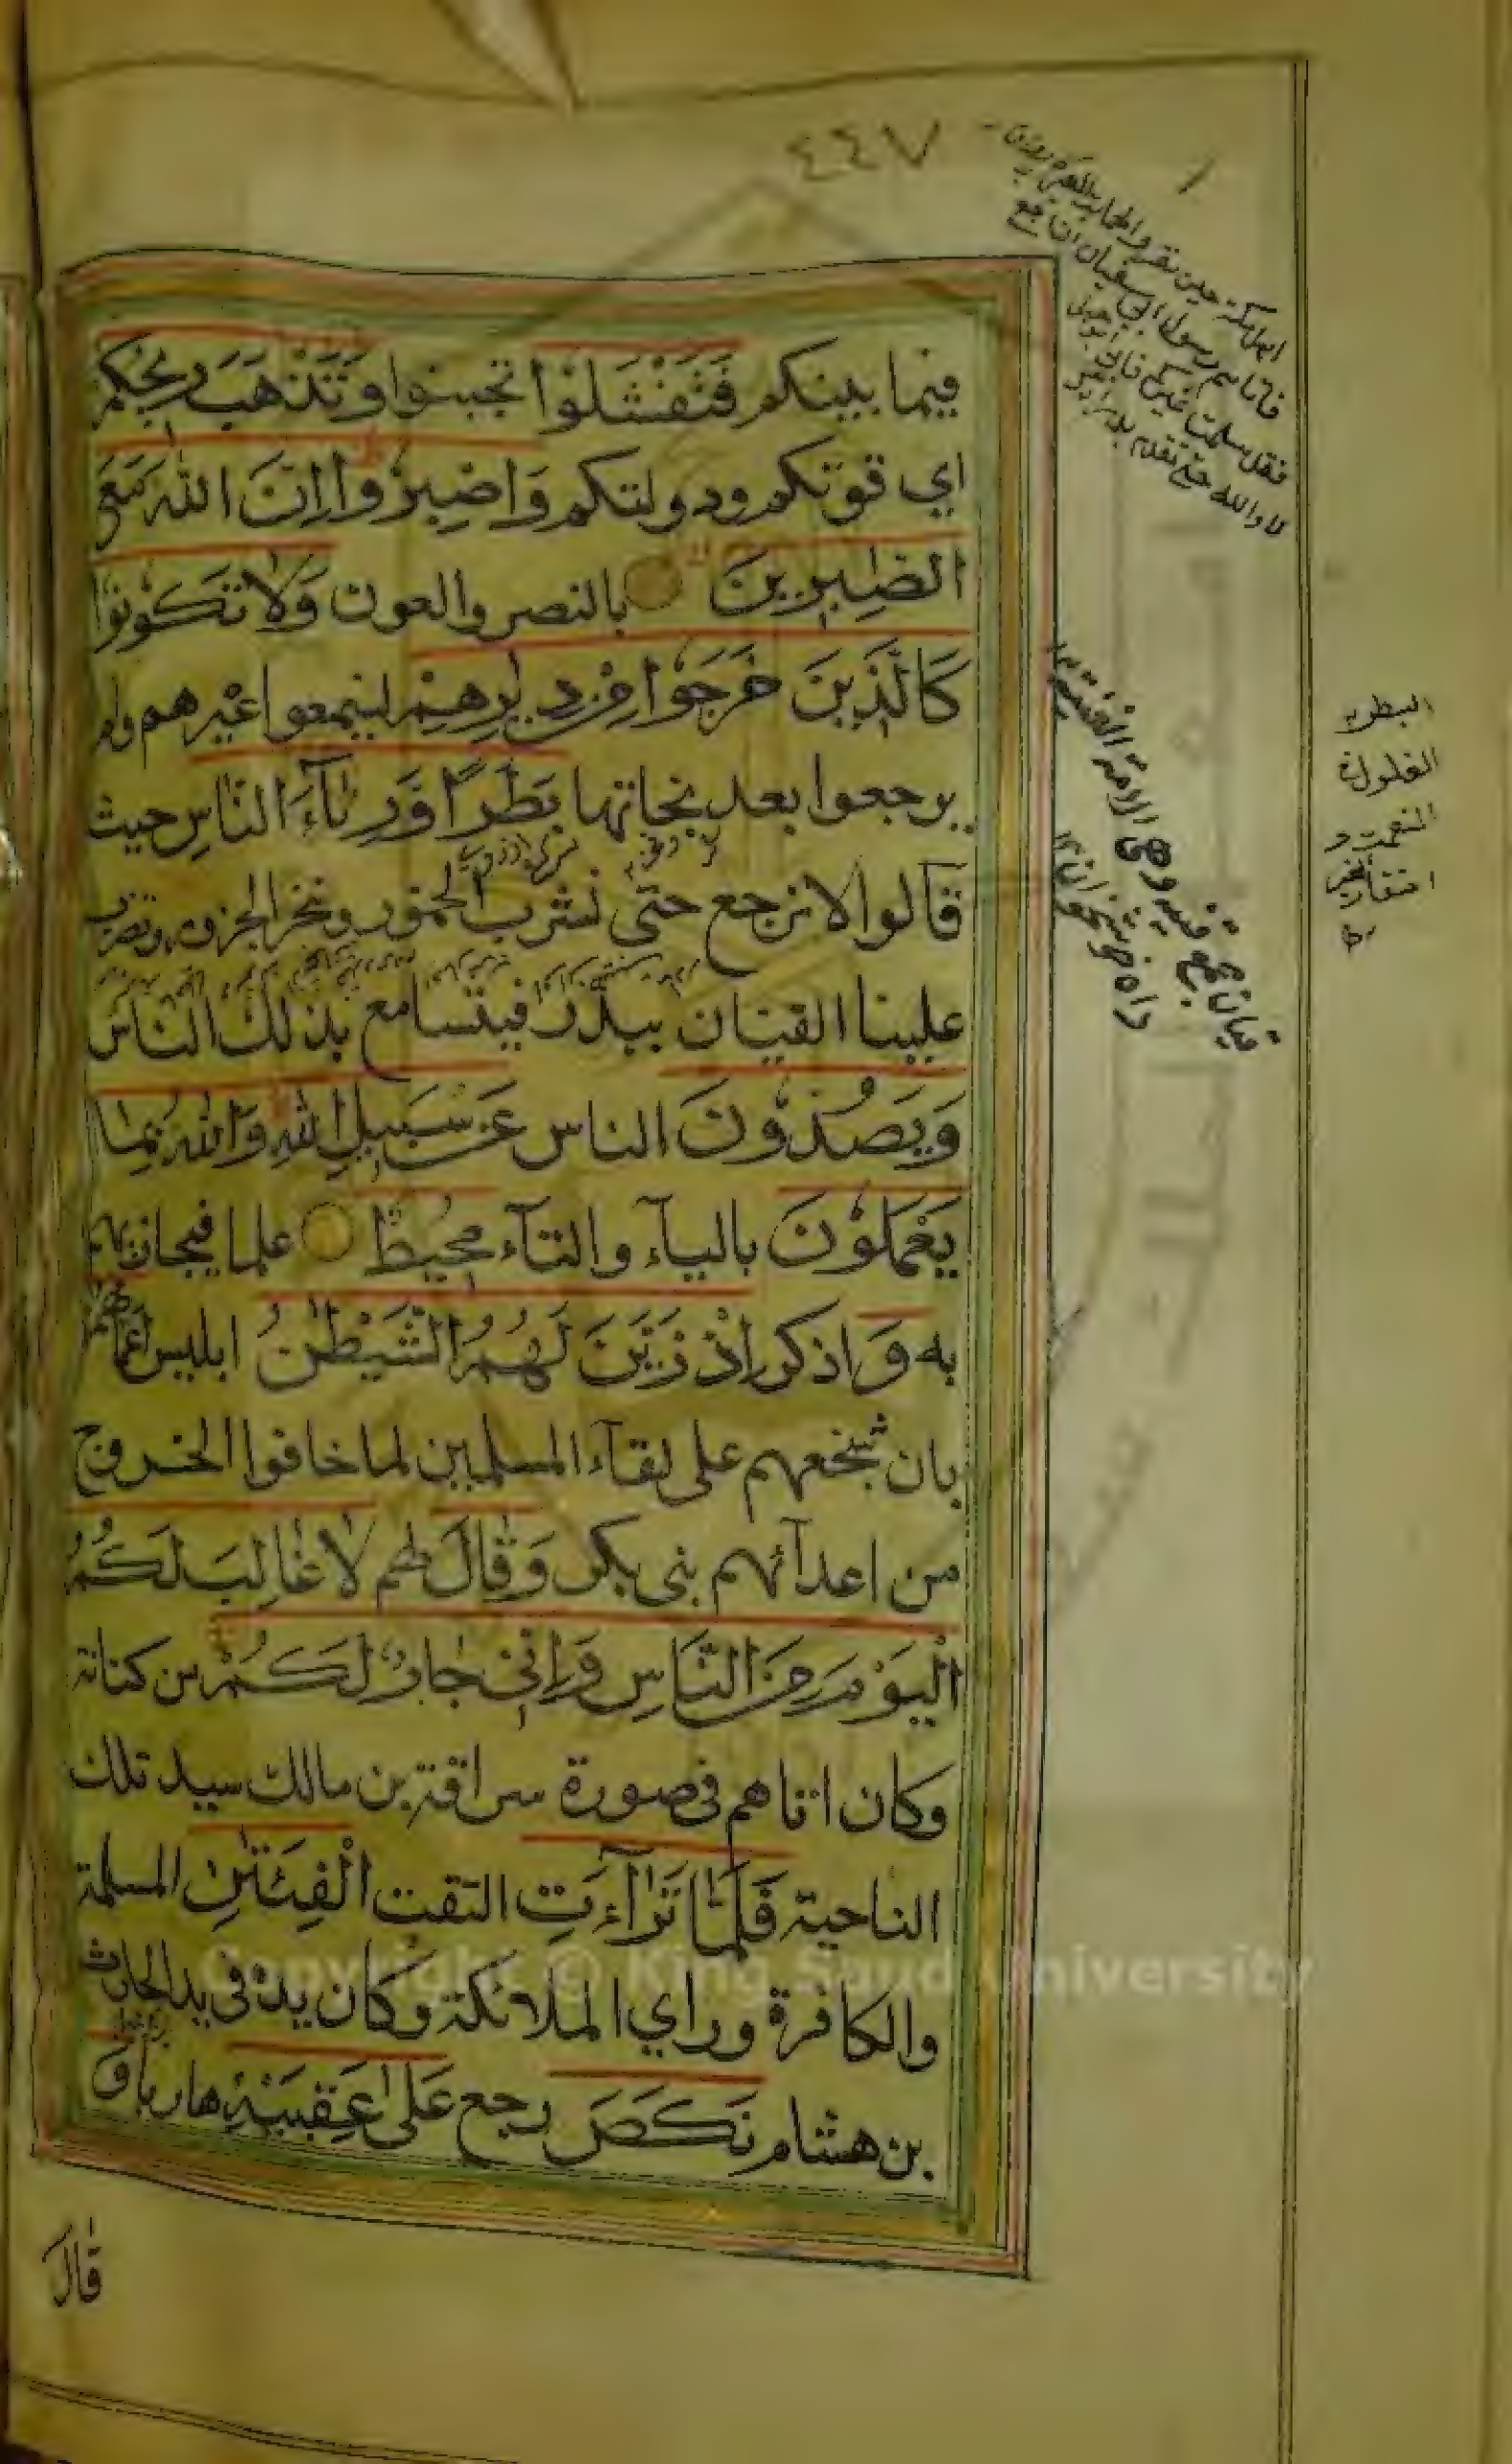 ٤٤٧
اهل مكة حين نفروا
فاتاهم رسول ابي سفيان ان ارجع
فقد سلمت عيركم فابى ابو جهل
لا والله حتى نقدم بدرا
فيما بينكم فَتَفْشَلُوْا تجبنوا وَتَذْهَبَ رِيْحُكُمْ
اي قوتكم ودولتكم وَاصْبِرُوْا اِنَّ اللّٰهَ مَعَ
الصّٰبِرِيْنَ بالنصر والعون وَلَا تَكُوْنُوْا
كَالَّذِيْنَ خَرَجُوْا مِنْ دِيَارِهِمْ ليمنعوا عيرهم ولم
يرجعوا بعد نجاتها بَطَرًا وَّرِئَآءَ النَّاسِ حيث
قالوا لا نرجع حتى نشرب الخمور وننحر الجزور وتضرب
علينا القينان ببدر فيتسامع بذلك الناس
وَيَصُدُّوْنَ الناس عَنْ سَبِيْلِ اللّٰهِ وَاللّٰهُ بِمَا
يَعْمَلُوْنَ بالياء والتآء مُحِيْطٌ علما فيجازيهم
به وَ اذكر اِذْ زَيَّنَ لَهُمُ الشَّيْطٰنُ ابليس اَعْمَالَهُمْ
بان شجعهم على لقآء المسلمين لما خافوا الخروج
من اعدآئهم بنى بكر وَقَالَ لهم لَا غَالِبَ لَكُمُ
الْيَوْمَ مِنَ النَّاسِ وَاِنِّىْ جَارٌ لَّكُمْ من كنانة
وكان اتاهم فى صورة سراقة بن مالك سيد تلك
الناحية فَلَمَّا تَرَآءَتِ التقت الْفِئَتٰنِ المسلمة
والكافرة وراي الملائكة وكان يده فى يد الحارث
بن هشام نَكَصَ رجع عَلٰى عَقِبَيْهِ هاربا وَ
قَالَ
القينة وهى الامة المغنية
قيان جمع قينة
البطر
الغلول
النعمة و
Copyright © King Saud University